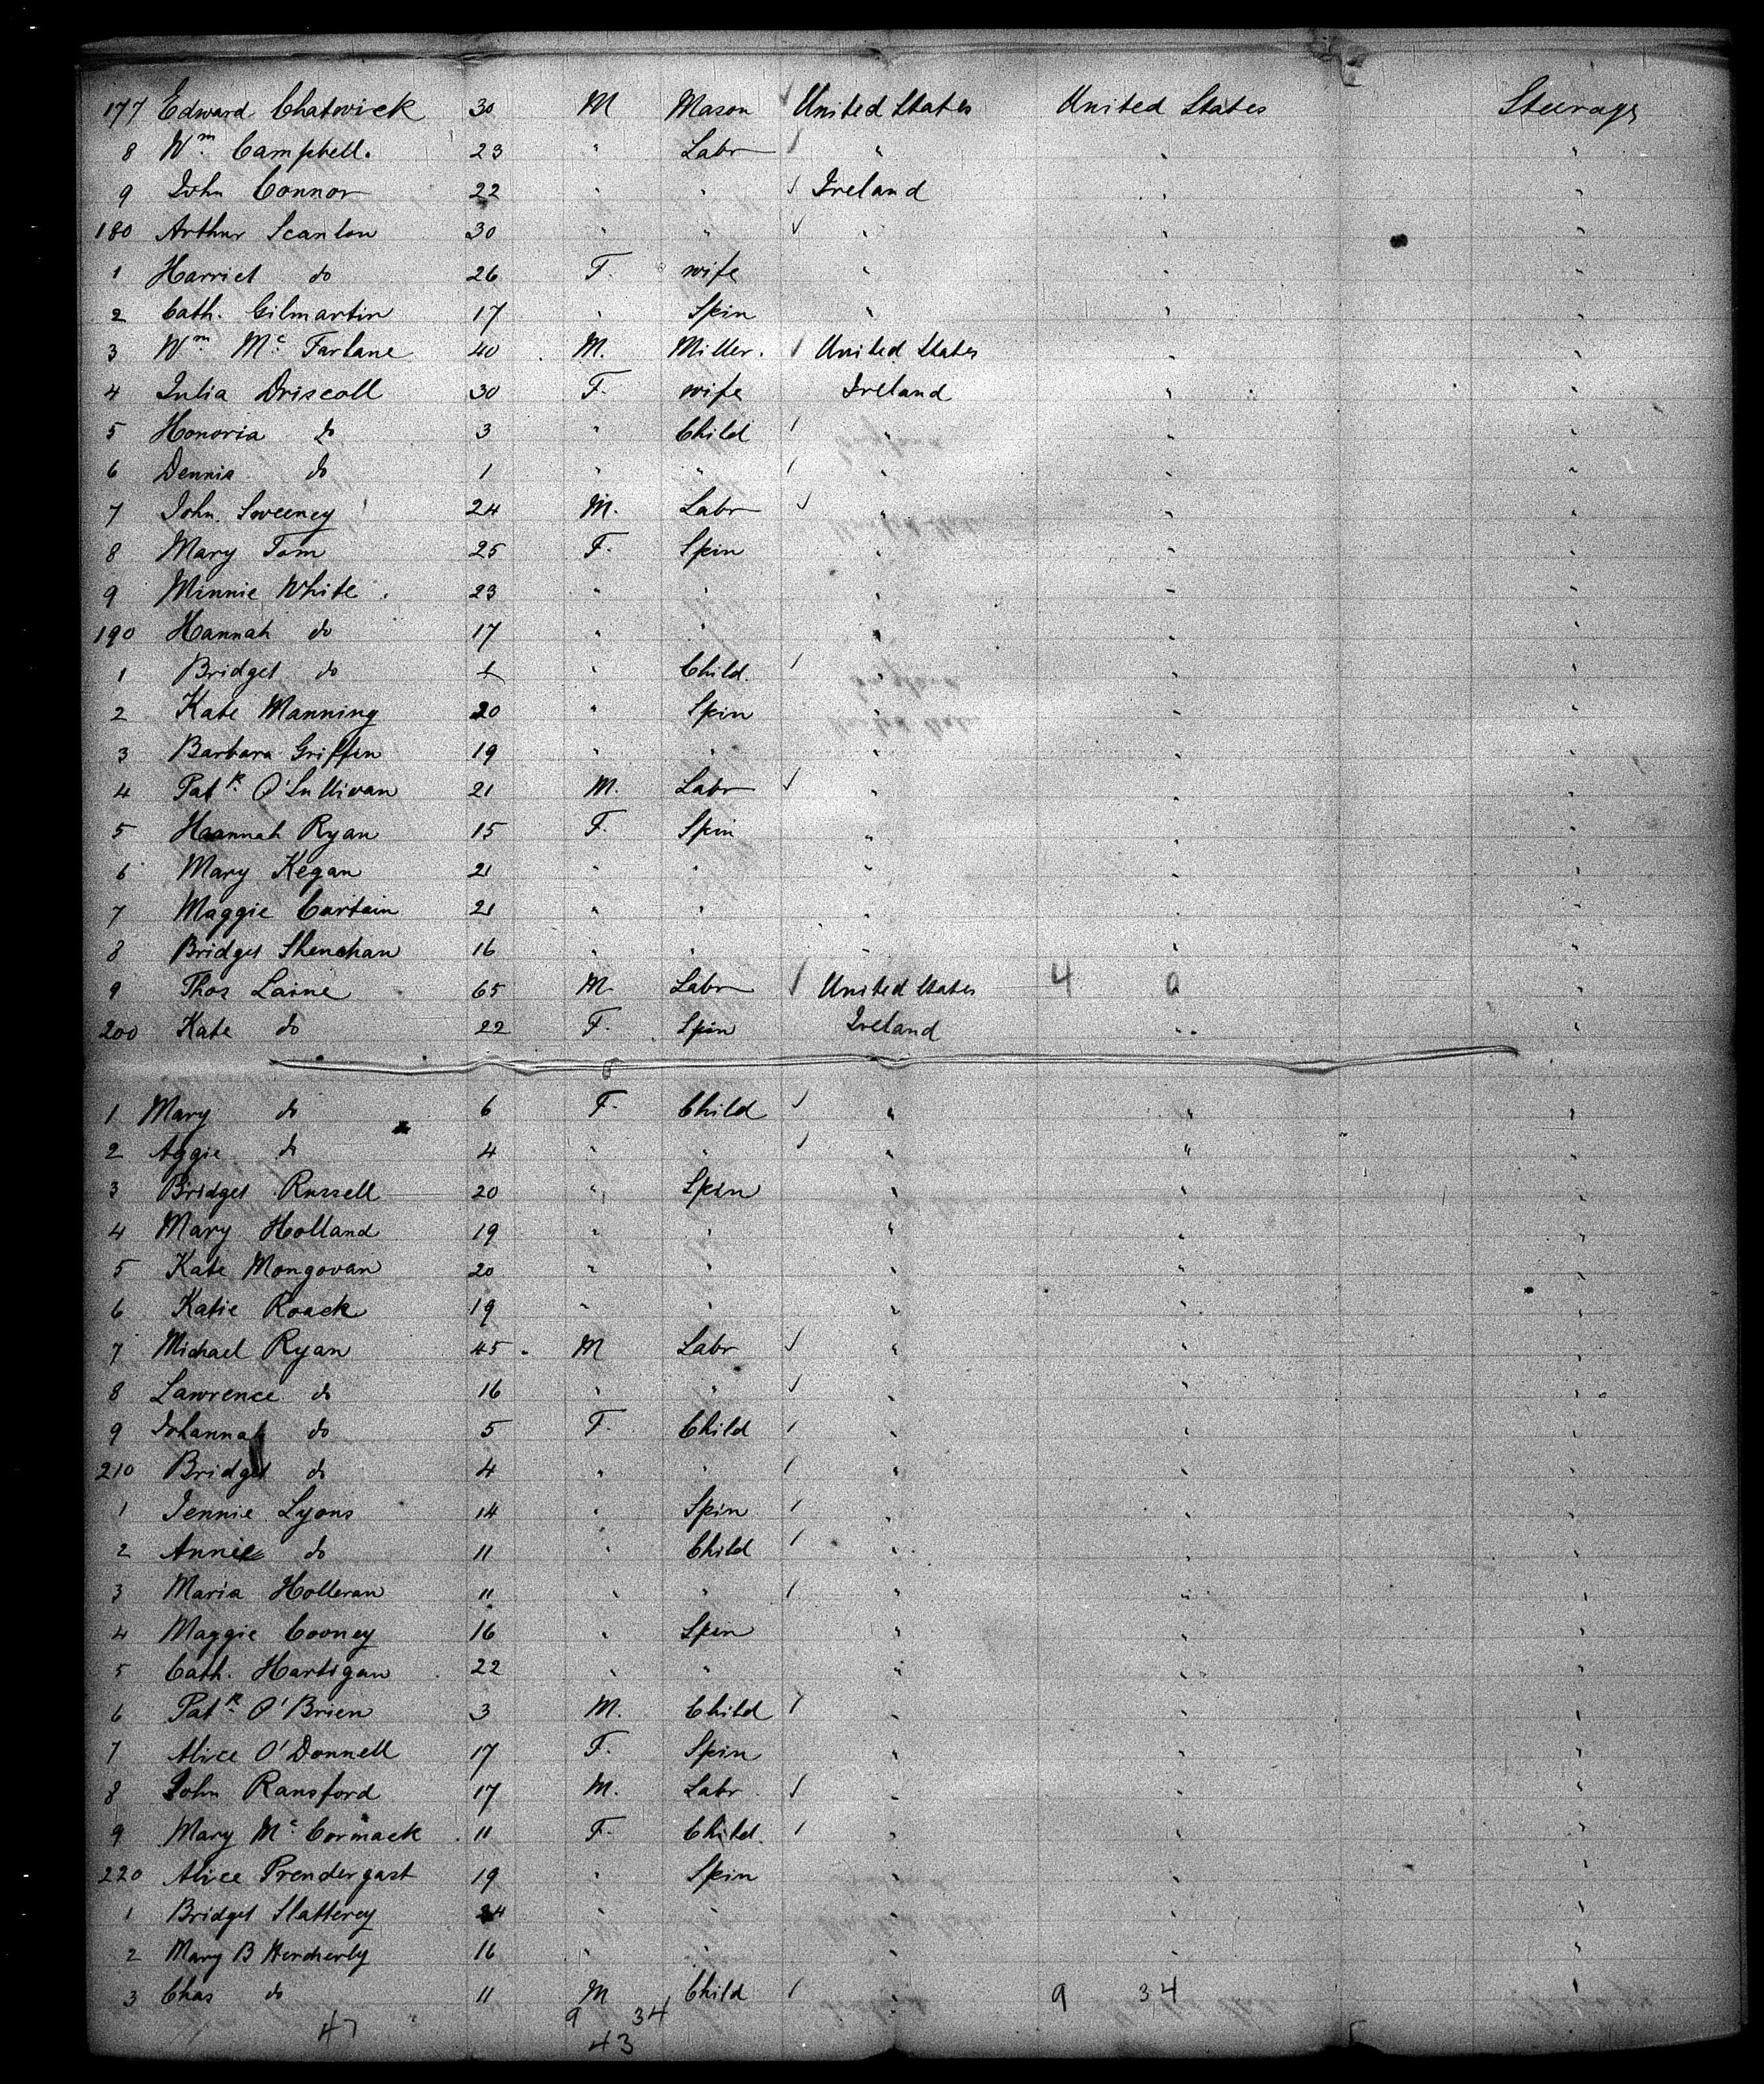 177 Edward Chatwick 30 M Mason √ United States United States Steerage
8 Wm. Campbell. 23 " Labr √ " " "
9 John Connor 22 " " √ Ireland " "
180 Arthur Scanlon 30 " " √ " " "
1 Harriet do 26 F. wife " " "
2 Cath. Gilmartin 17 " Spin " " "
3 Wm. Mc Farlane 40 M. Miller. √ United States " "
4 Julia Driscoll 30 F. wife Ireland " "
5 Honoria do 3 " Child / " " "
6 Dennis do 1 " " / " " "
7 John Sweeney 24 M. Labr √ " " "
8 Mary Tom 25 F. Spin " " "
9 Minnie White. 23 " " " " "
190 Hannah do 17 " " " " "
1 Bridget do " Child. / " " "
2 Kate Manning 20 " Spin " " "
3 Barbara Griffin 19 " " " " "
4 Patk. O'Sullivan 21 M. Labr √ " " "
5 Hannah Ryan 15 F. Spin " " "
6 Mary Kegan 21 " " " " "
7 Maggie Curtain 21 " " " " "
8 Bridget Shenehan 16 " " " " "
9 Thos Laine 65 M. Labr / United States 4 "
200 Kate do 22 F. Spin Ireland " "
1 Mary do 6 F. Child √ " " "
2 Aggie do 4 " " √ " " "
3 Bridget Russell 20 " Spin " " "
4 Mary Holland 19 " " " " "
5 Kate Mongovan 20 " " " " "
6 Katie Roack 19 " " " " "
7 Michael Ryan 45 M Labr √ " " "
8 Lawrence do 16 " " √ " " "
9 Johannah do 5 F. Child / " " "
210 Bridget do 4 " " / " " "
1 Jennie Lyons 14 " Spin / " " "
2 Annie do 11 " Child / " " "
3 Maria Holleran 11 " " / " " "
4 Maggie Cooney 16 " Spin " " "
5 Cath. Hartigan 22 " " " " "
6 Patk. O'Brien 3 M. Child / " " "
7 Alice O'Donnell 17 F. Spin " " "
8 John Ransford 17 M. Labr √ " " "
9 Mary Mc Cormack 11 F. Child. / " " "
220 Alice Prendergast 19 " Spin " " "
1 Bridget Slatterey 24 " " " " "
2 Mary B 16 " " " " "
3 Chas do 11 M Child / " 9 34 "
9 34
47 43